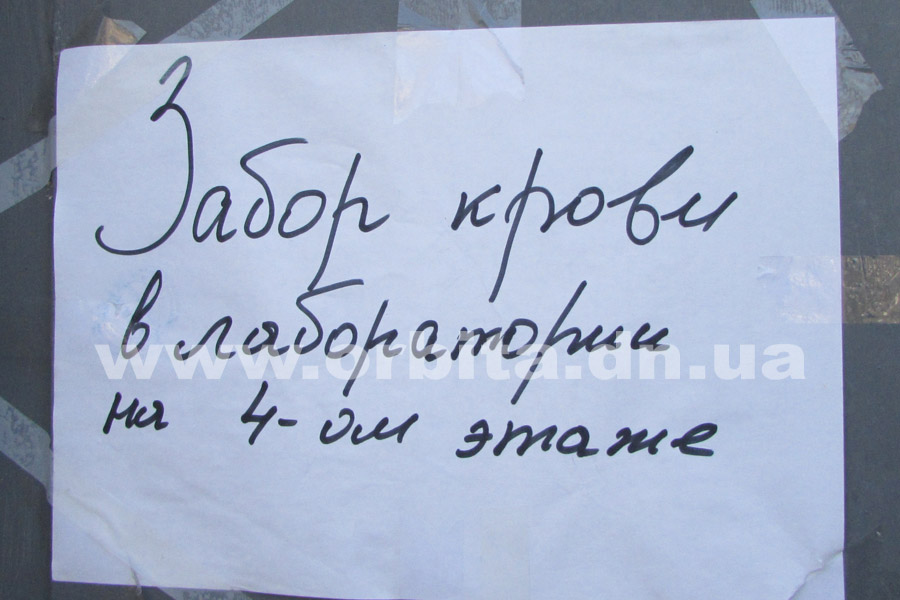 Забор крови
в лаборатории
www.orbita.dn.ua
на 4-ом этаже